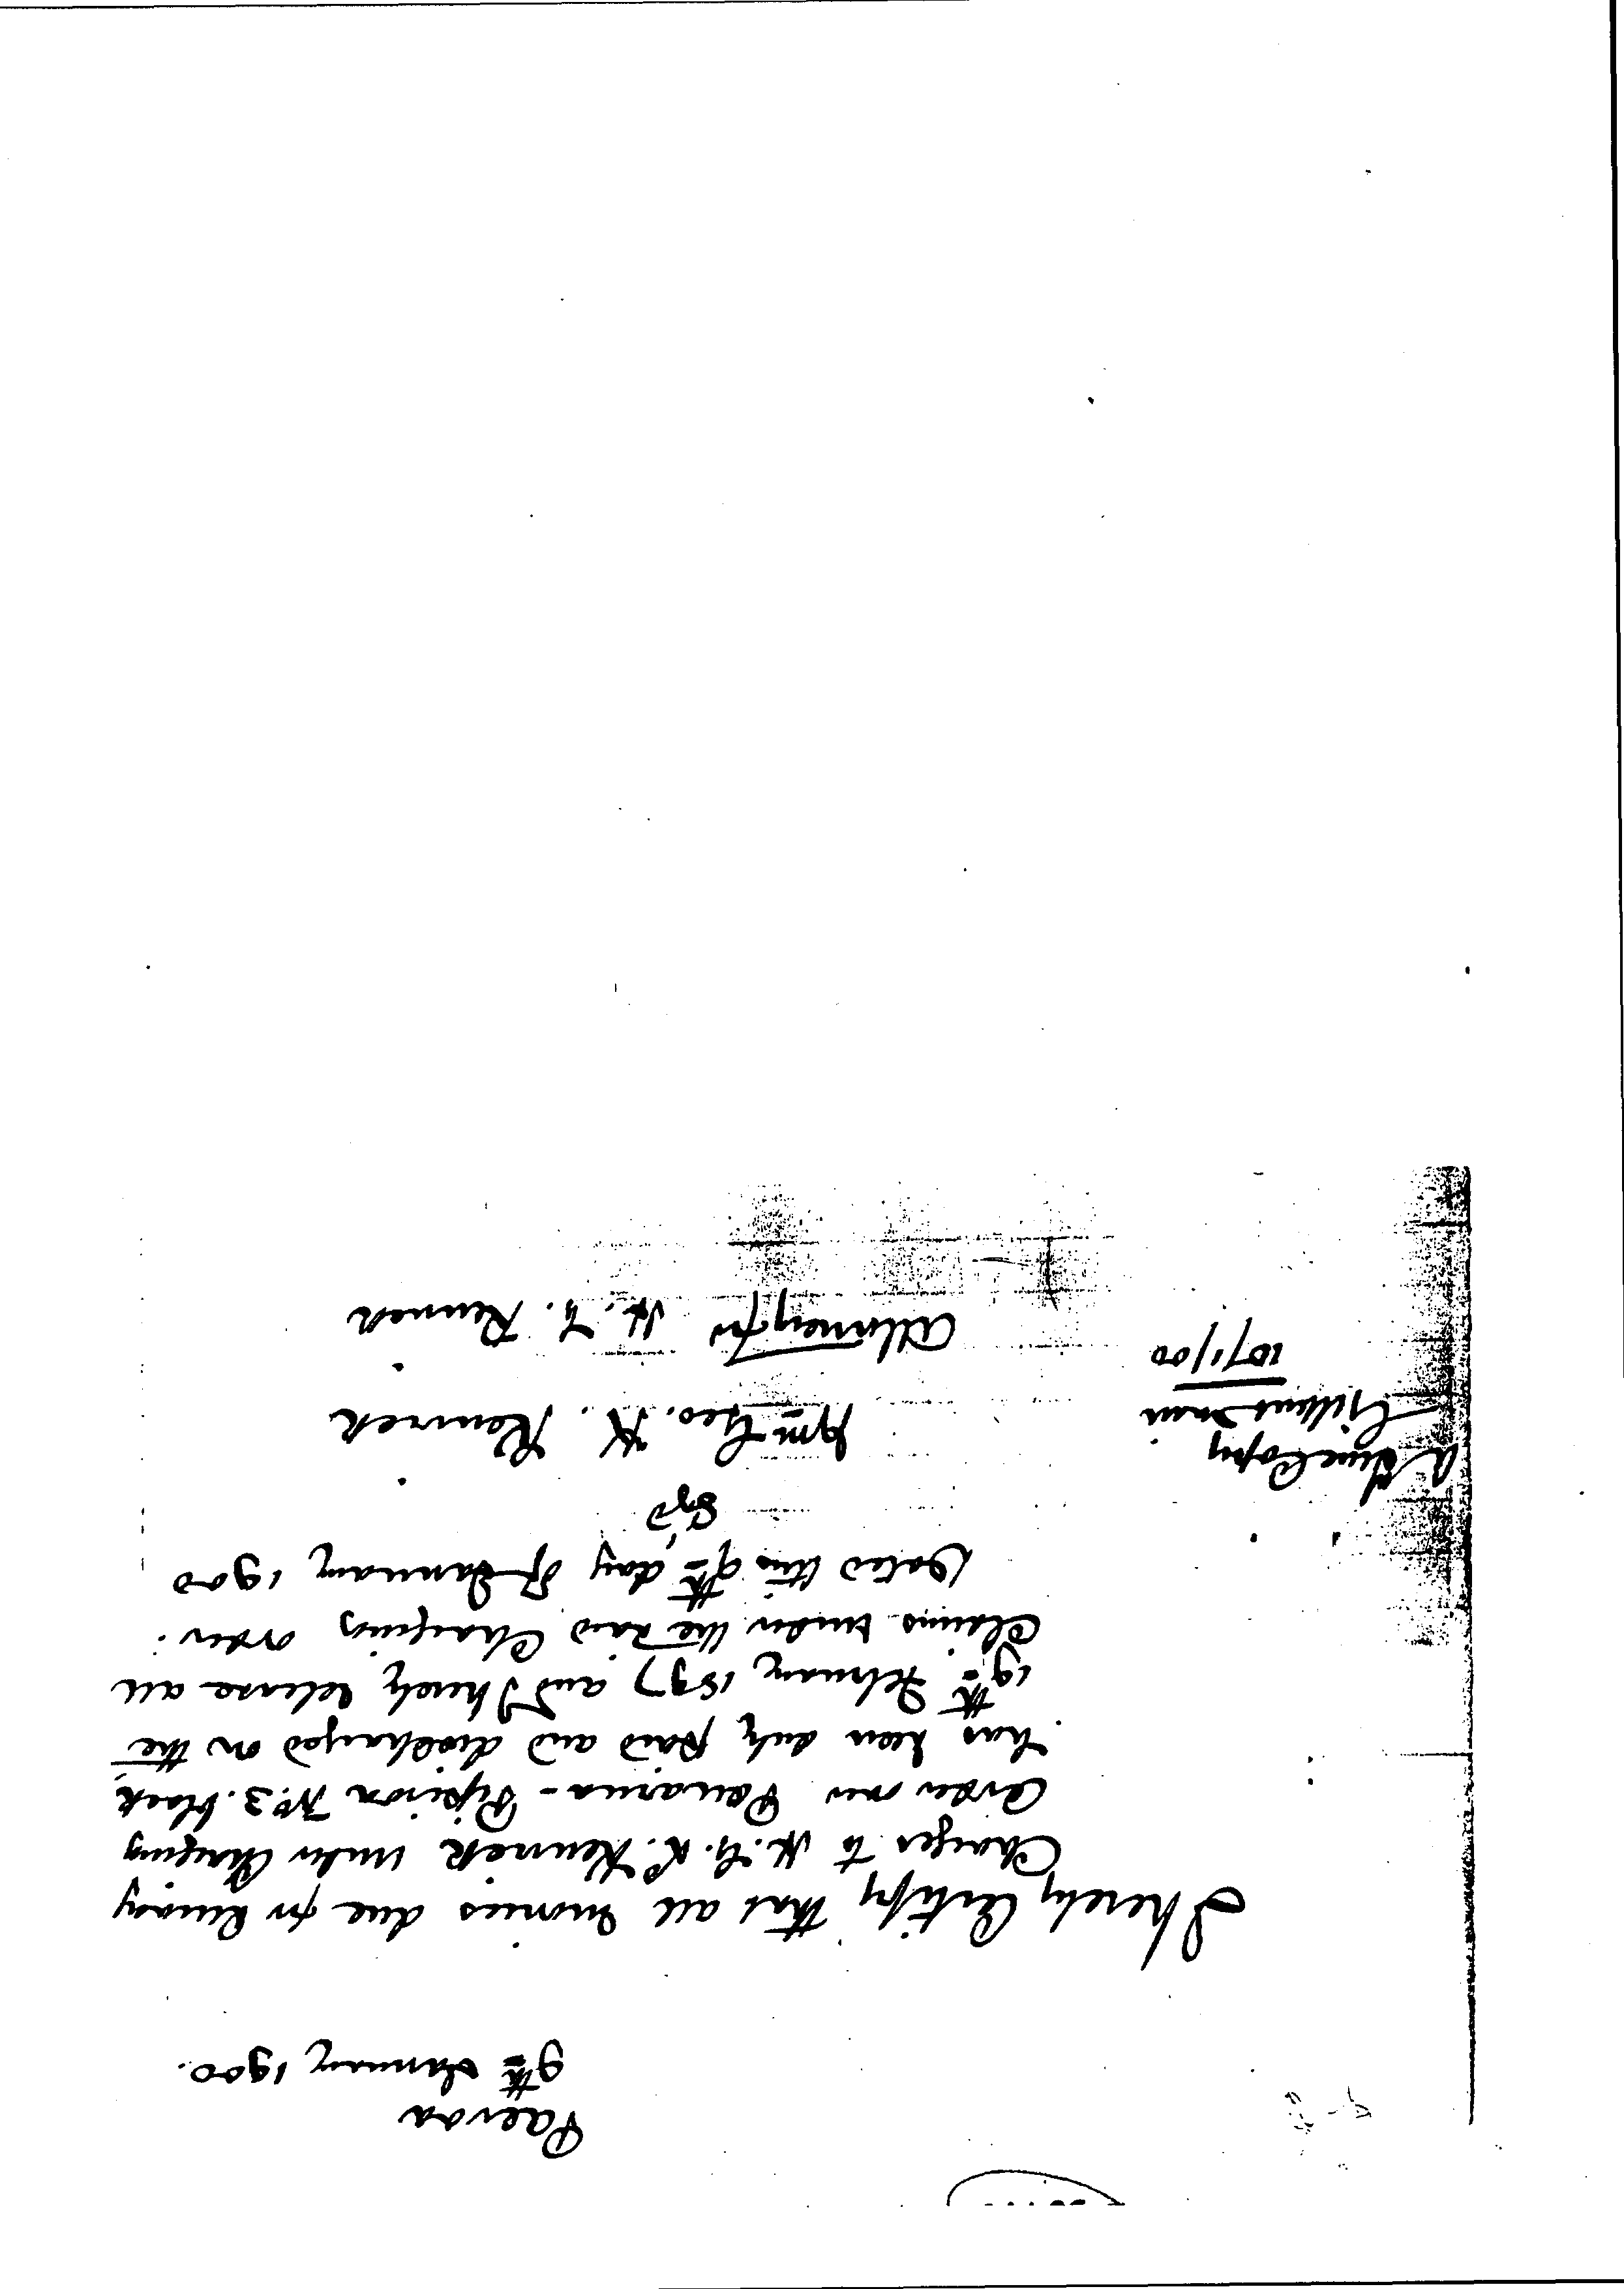 Paeroa
9th January 1900.
I hereby Certify that all monies due for Survey
Charges to H. G. L. Kenrick under Charging
Order over Paearua - Pipiroa No. 3. block
has been duly paid and discharged on the
19th February 1897 and I hereby release all
Claims under the said Charging order.
Dated this 9th day of January 1900
Sgd
Geo. H. Kenrick
Attorney for H. G. Kenrick
A True Copy
10/1/00